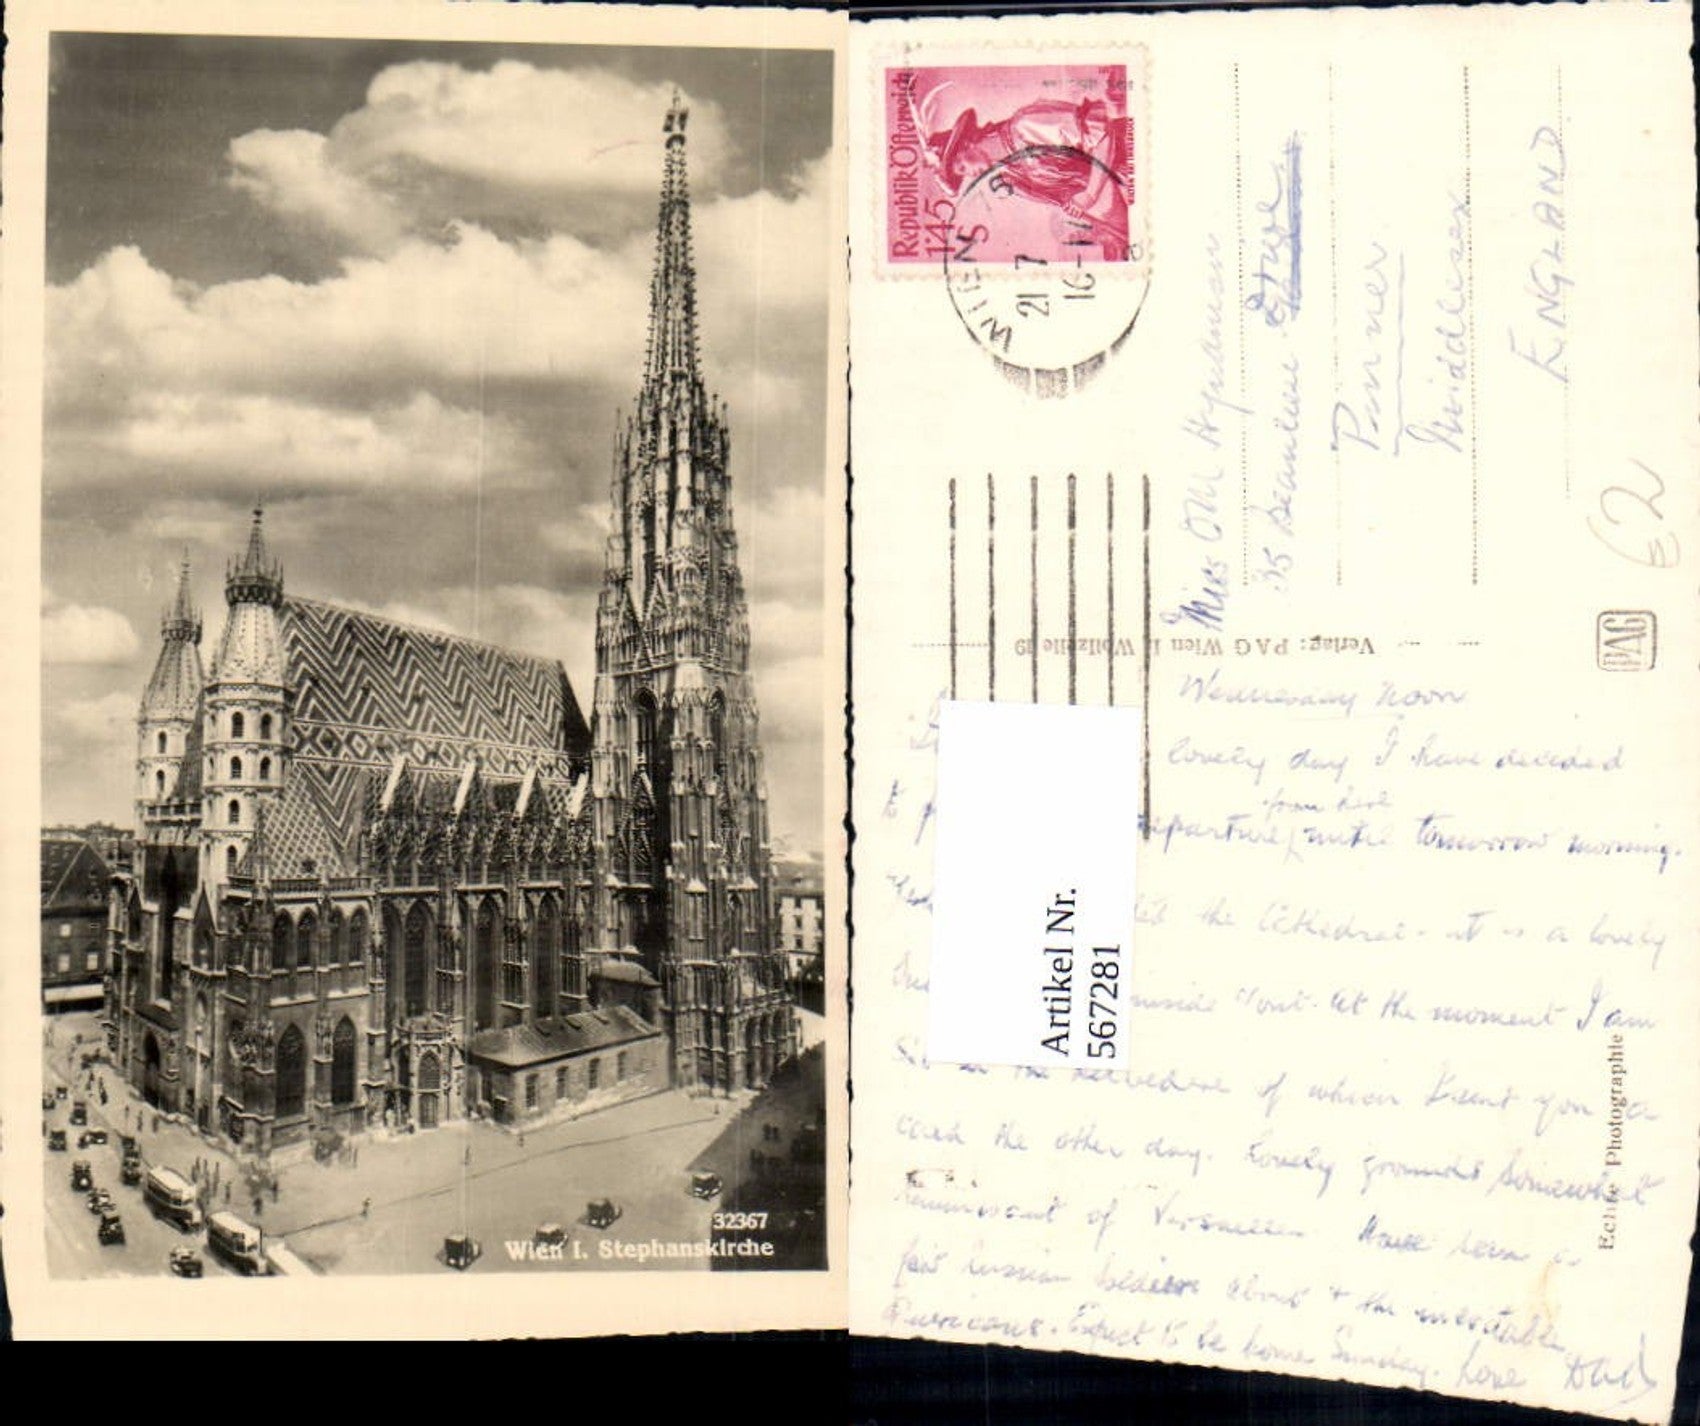 32367
Wien I. Stephanskirche
Republik Österreich
1'45
S
WIEN
21 7
16-17
Miss M Hyamson
35 Beaulieu Drive
Pinner
Middlesex
ENGLAND
£2
Verlag: PAG Wien I. Wollzeile 19
PAG
Echte Photographie
Artikel Nr.
567281
Wednesday noon
lovely day I have decided
from here
to departure until tomorrow morning.
the Cathedral - it is a lovely
inside & out. At the moment I am
in the Belvedere of which I sent you a
card the other day. Lovely grounds somewhat
reminiscent of Versailles. Have seen a
few Russian soldiers about & the inevitable
Americans. Expect to be home Sunday. Love Dad